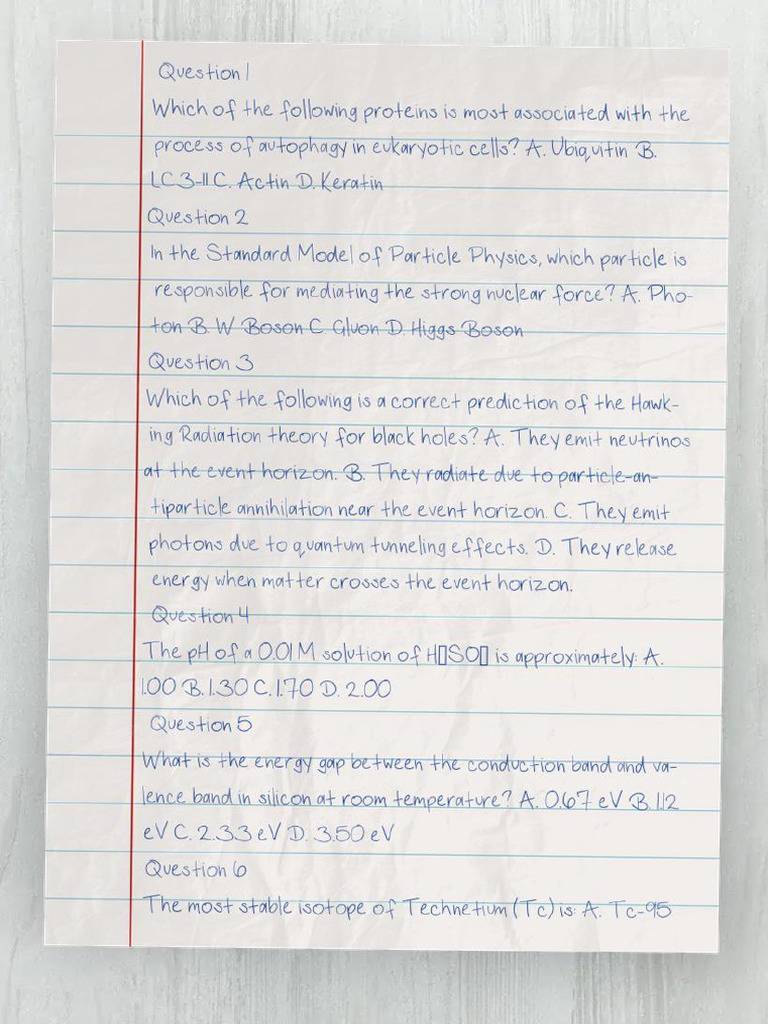 Question 1
Which of the following proteins is most associated with the
process of autophagy in eukaryotic cells? A. Ubiquitin B.
LC3-II C. Actin D. Keratin
Question 2
In the Standard Model of Particle Physics, which particle is
responsible for mediating the strong nuclear force? A. Pho-
ton B. W Boson C. Gluon D. Higgs Boson
Question 3
Which of the following is a correct prediction of the Hawk-
ing Radiation theory for black holes? A. They emit neutrinos
at the event horizon. B. They radiate due to particle-an-
tiparticle annihilation near the event horizon. C. They emit
photons due to quantum tunneling effects. D. They release
energy when matter crosses the event horizon.
Question 4
The pH of a 0.01 M solution of H▯SO▯ is approximately: A.
1.00 B. 1.30 C. 1.70 D. 2.00
Question 5
What is the energy gap between the conduction band and va-
lence band in silicon at room temperature? A. 0.67 eV B. 1.12
eV C. 2.33 eV D. 3.50 eV
Question 6
The most stable isotope of Technetium (Tc) is: A. Tc-95